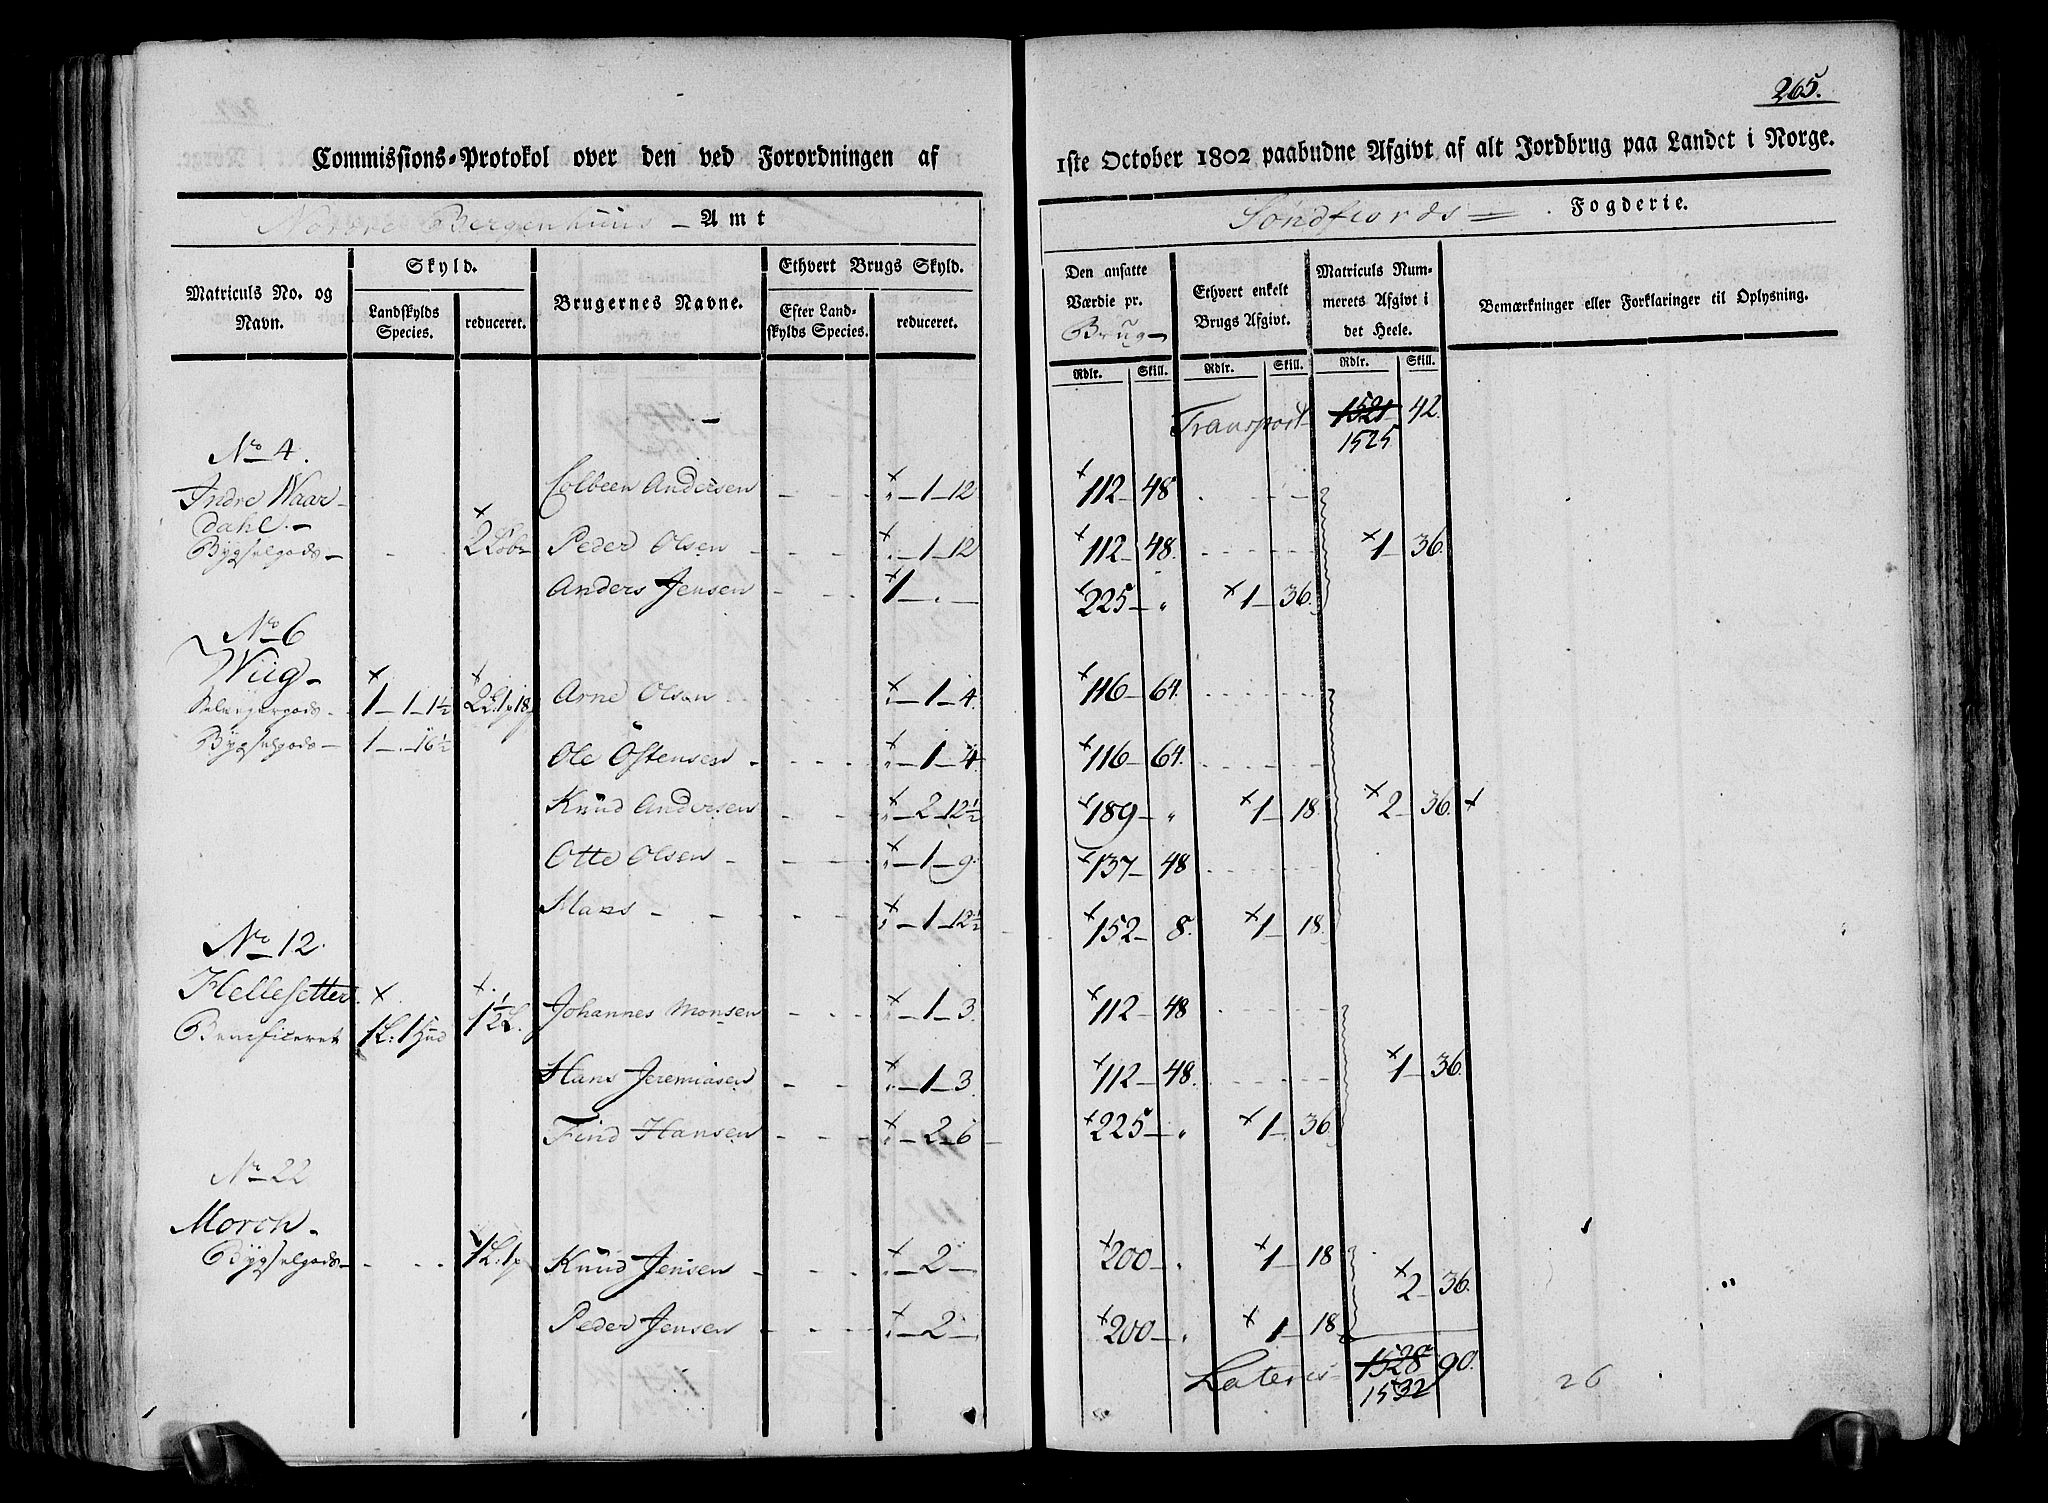 265.
Commissions-Protokol over den ved Forordningen af 1ste October 1802 paabudne Afgivt af alt Jordbrug paa Landet i Norge.
Nordre Bergenhuus – Amt Söndfiords = Fogderie.
Matriculs No. og Navn.
Skyld.
Landskylds Species.
reduceret.
Brugernes Navne.
Ethvert Brugs Skyld.
Efter Landskylds Species.
reduceret.
Den ansatte Værdie pr. Brug –
Ethvert enkelt Brugs Afgivt.
Matriculs Nummerets Afgivt i det Heele.
Bemærkninger eller Forklaringer til Oplysning.
Rdlr. Skill. Rdlr. Skill. Rdlr. Skill.
Transport 1521 42.
1525
No 4.
Indre Waar- Colbeen Andersen " – 1 – 12 112 – 48
dahl. –
Bygselgods – 2 Løbr Peder Olsen " – 1 – 12 112 – 48. 1 – 36.
Anders Jensen 1 – " – 225 – " 1 – 36.
No 6
Wiig –
1 – 1 – 1½ 2L. 1p 18 Arne Olsen " – 1 – 4. 116 – 64.
Bygselgods – 1 – " – 16½
Ole Östensen " – 1 – 4. 116 – 64.
Knud Andersen " – 2 – 12½ 189 – " 1 – 18. 2 – 36.
Otte Olsen " – 1 – 9. 137 – 48
Mans – " – 1 – 12½ 152 – 8. 1 – 18.
No 12.
Hellesetter Johannes Monsen " – 1 – 3. 112 – 48
Beneficeret 1L. 1 Hud 1½ L.
Hans Jeremiasen " – 1 – 3. 112 – 48. 1 – 36.
Find Hansen " – 2 – 6 225 – " 1 – 36
No 22
Morch –
Bygselgods – 1L. 1p Knud Jensen " – 2 – 200 – " 1 – 18 2 – 36.
Peder Jensen " – 2 – 200 – " 1 – 18
Lateris – 1528 90.
1532
26